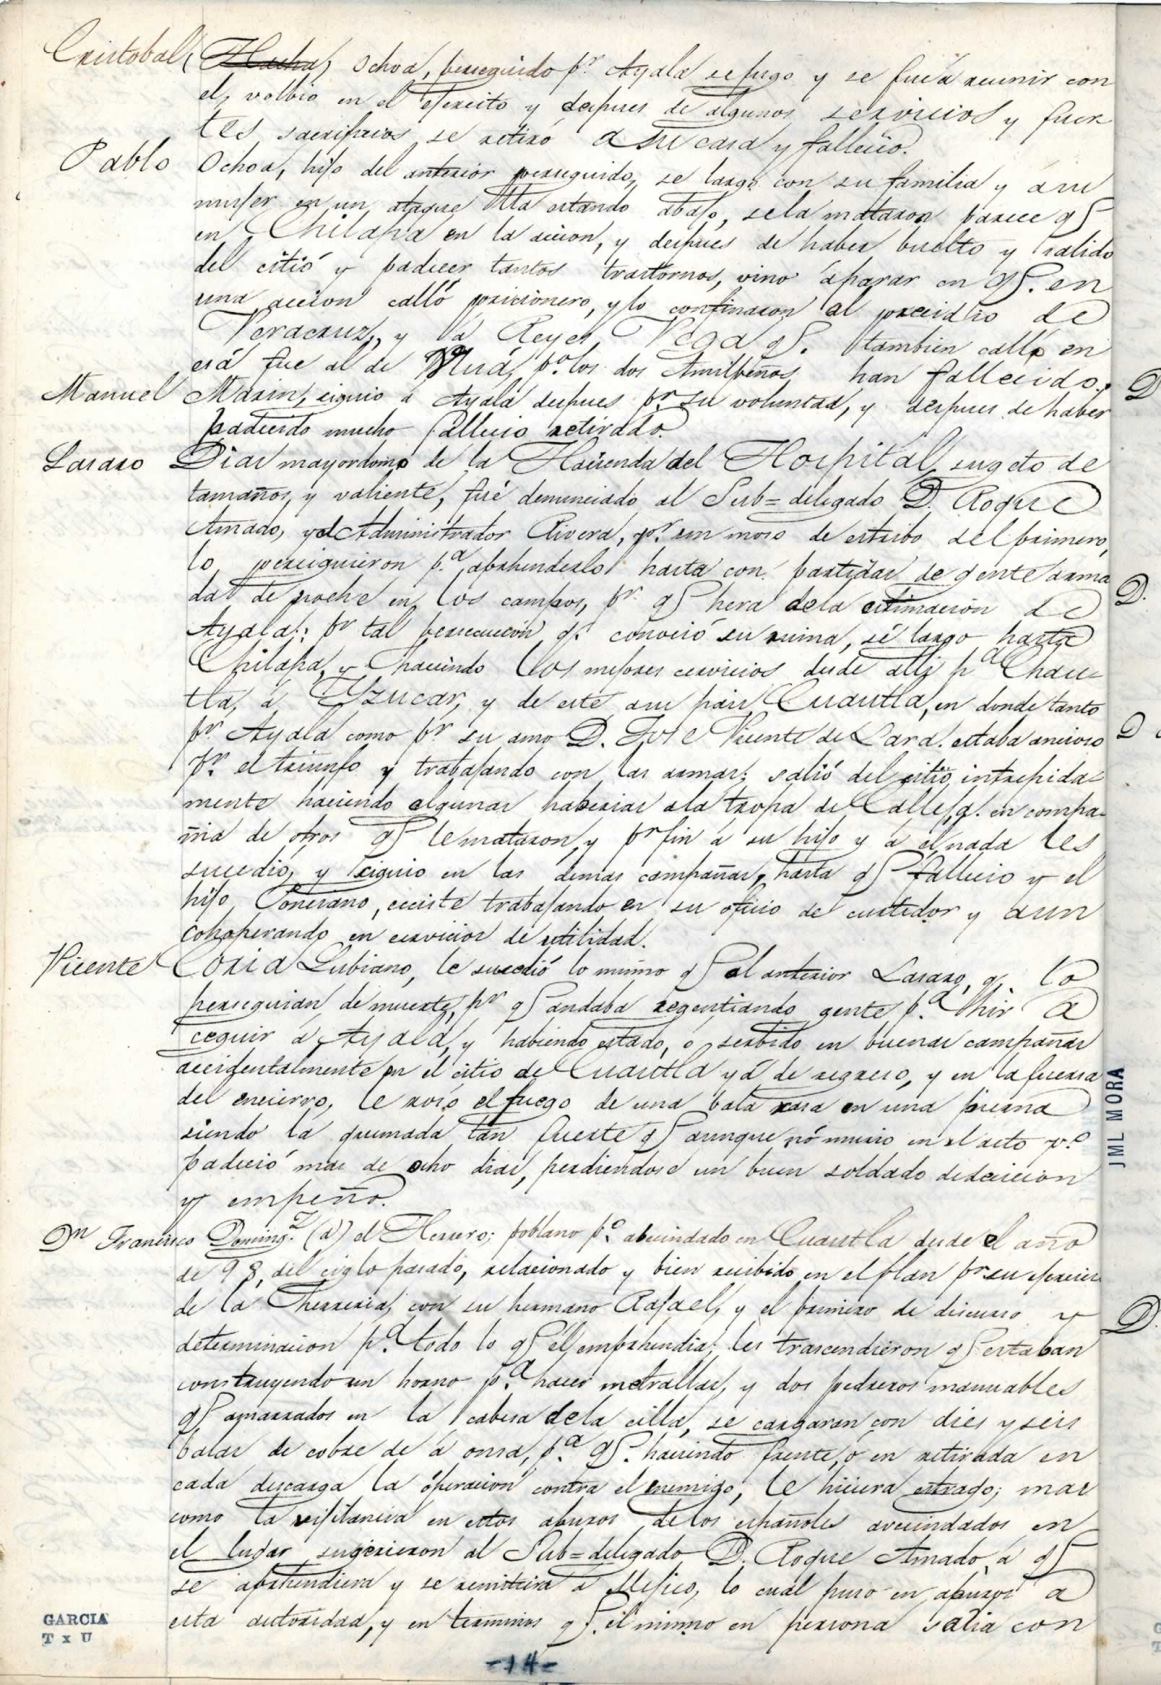 Cristobal (Hacha) Ochoa, perseguido pr. Ayala se fugo y se fue á reunir con
el, volbio en el ejercito y despues de algunos servicios y fuer
tes sacrificios se retiró a su casa y fallecio.
Pablo Ochoa, hijo del anterior perseguido, se largo con su familia y á su
mujer en un ataque estando abajo, se la mataron parece qe
en Chilapa en la acion, y despues de haber buelto y salido
del citió y padecer tantos trastornos, vino áparar en qe. en
una accion calló pricionero, y lo confinaron al precidio de
Veracruz, y á Reyes Vega qe. tambien calló en
esá fue al de pa. los dos Amilbeños han fallecido.
Manuel Marin, siguio á Ayala despues pr. su voluntad, y despues de haber
padecido mucho fallecio retirado.
Lasaro Dias mayordomo de la Hacienda del Hospital, sugeto de
tamaños, y valiente, fué denunciado al Sub=delegado D. Roque
Amado, y al Administrador Rivera, pr. un moso de estribo del primero,
lo persiguieron pa. abrehenderlo hasta con partidas de gente arma
das de noche en los campos, pr. qe hera de la estimación de
Ayala; pr tal persecucion qe. conoció su ruina, sé largo hasta
Chilapa, y haciendo los mejores cervicios desde alli pa Chau-
tla, á Yzucar, y de este á su pais Cuautla, en donde tanto
pr. Ayala como pr. su amo D. José Vicente de Lara. estaba ancioso
pr. el triunfo y trabajando con las armas; salió del citio intrepida-
mente haciendo algunas haberias a la tropa de Calleja. en compa-
ñia de otros qe le mataron, y pr fin á su hijo y á el nada les
sucedio, y siguio en las demas campañas, hasta qe fallecio y el
hijo Ponciano, ecciste trabajando en su oficio de curtidor y aun
cohoperando en cervicios de utilidad.
Vicente Coria Lubiano, le sucedió lo mismo qe al anterior Lasaro, qe. lo
perseguian de muerte, pr qe andaba regentiando gente pa. hir a
ceguir á Ayala, y habiendo estado, o serbido en buenas campañas
accidentalmente en el citio de Cuautla y á de regreso, y en la fuersa
del encierro, le roso el fuego de una bala rasa en una pierna
siendo la quemada tan fuerte qe aunque nó murio en el acto po.
padeció mas de ocho dias, perdiendose un buen soldado de decicion
y empeño.
Dn Francisco Domingz (á) el Herrero; poblano po. abecindado en Cuautla desde el año
de 98, del ciglo pasado, relacionado y bien recibido en el plan pr su ejercicio
de la Herreria, con su hermano Rafael, y el primero de discurso y
determinacion pa. todo lo qe el emprehendia; les trascendieron qe estaban
construyendo un horno pa. hacer metrallas, y dos pedreros manuables
qe amarrados en la cabesa de la cilla, se cargaran con dies y seis
balas de cobre de á onsa, pa. qe. haciendo frente, o en retirada en
cada descarga la óperacion contra el enemigo, le hiciera estrago; mas
como la vijilancia en estos abusos de los españoles avecindados en
el lugar sugirieron al Sub=delegado D. Roque Amado, á qe
se abrehendiera y se remitiera á Mejico, lo cual puso en apuros á
esta autoridad, y en terminos qe. él mismo en persona salia con
GARCIA
T x U
-14-
JML MORA